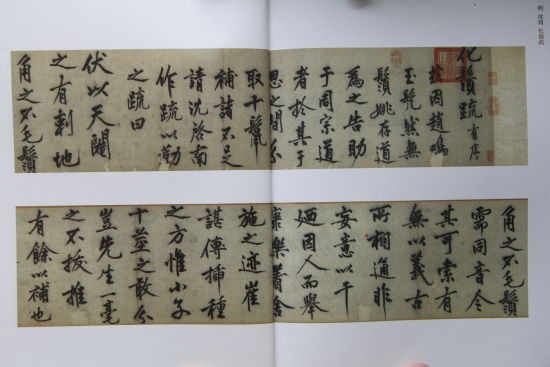 明 沈周 化鬚疏
化鬚疏有序
茲因趙鳴
玉髡然無
鬚姚存道
為之告助
于周宗道
者於其于
思之間分
取十鬣
補諸不足
請沈啓南
作疏以勸
之疏曰
伏以天閹
之有刺地
角之不毛鬚
角之不毛鬚
需同音今
其可索有
無以義古
所相通非
妄意以干
廼因人而舉
康樂著捨
施之迹崔
諶傳插種
之方惟小子
十莖之敢分
豈先生一毫
之不拔推
有餘以補也